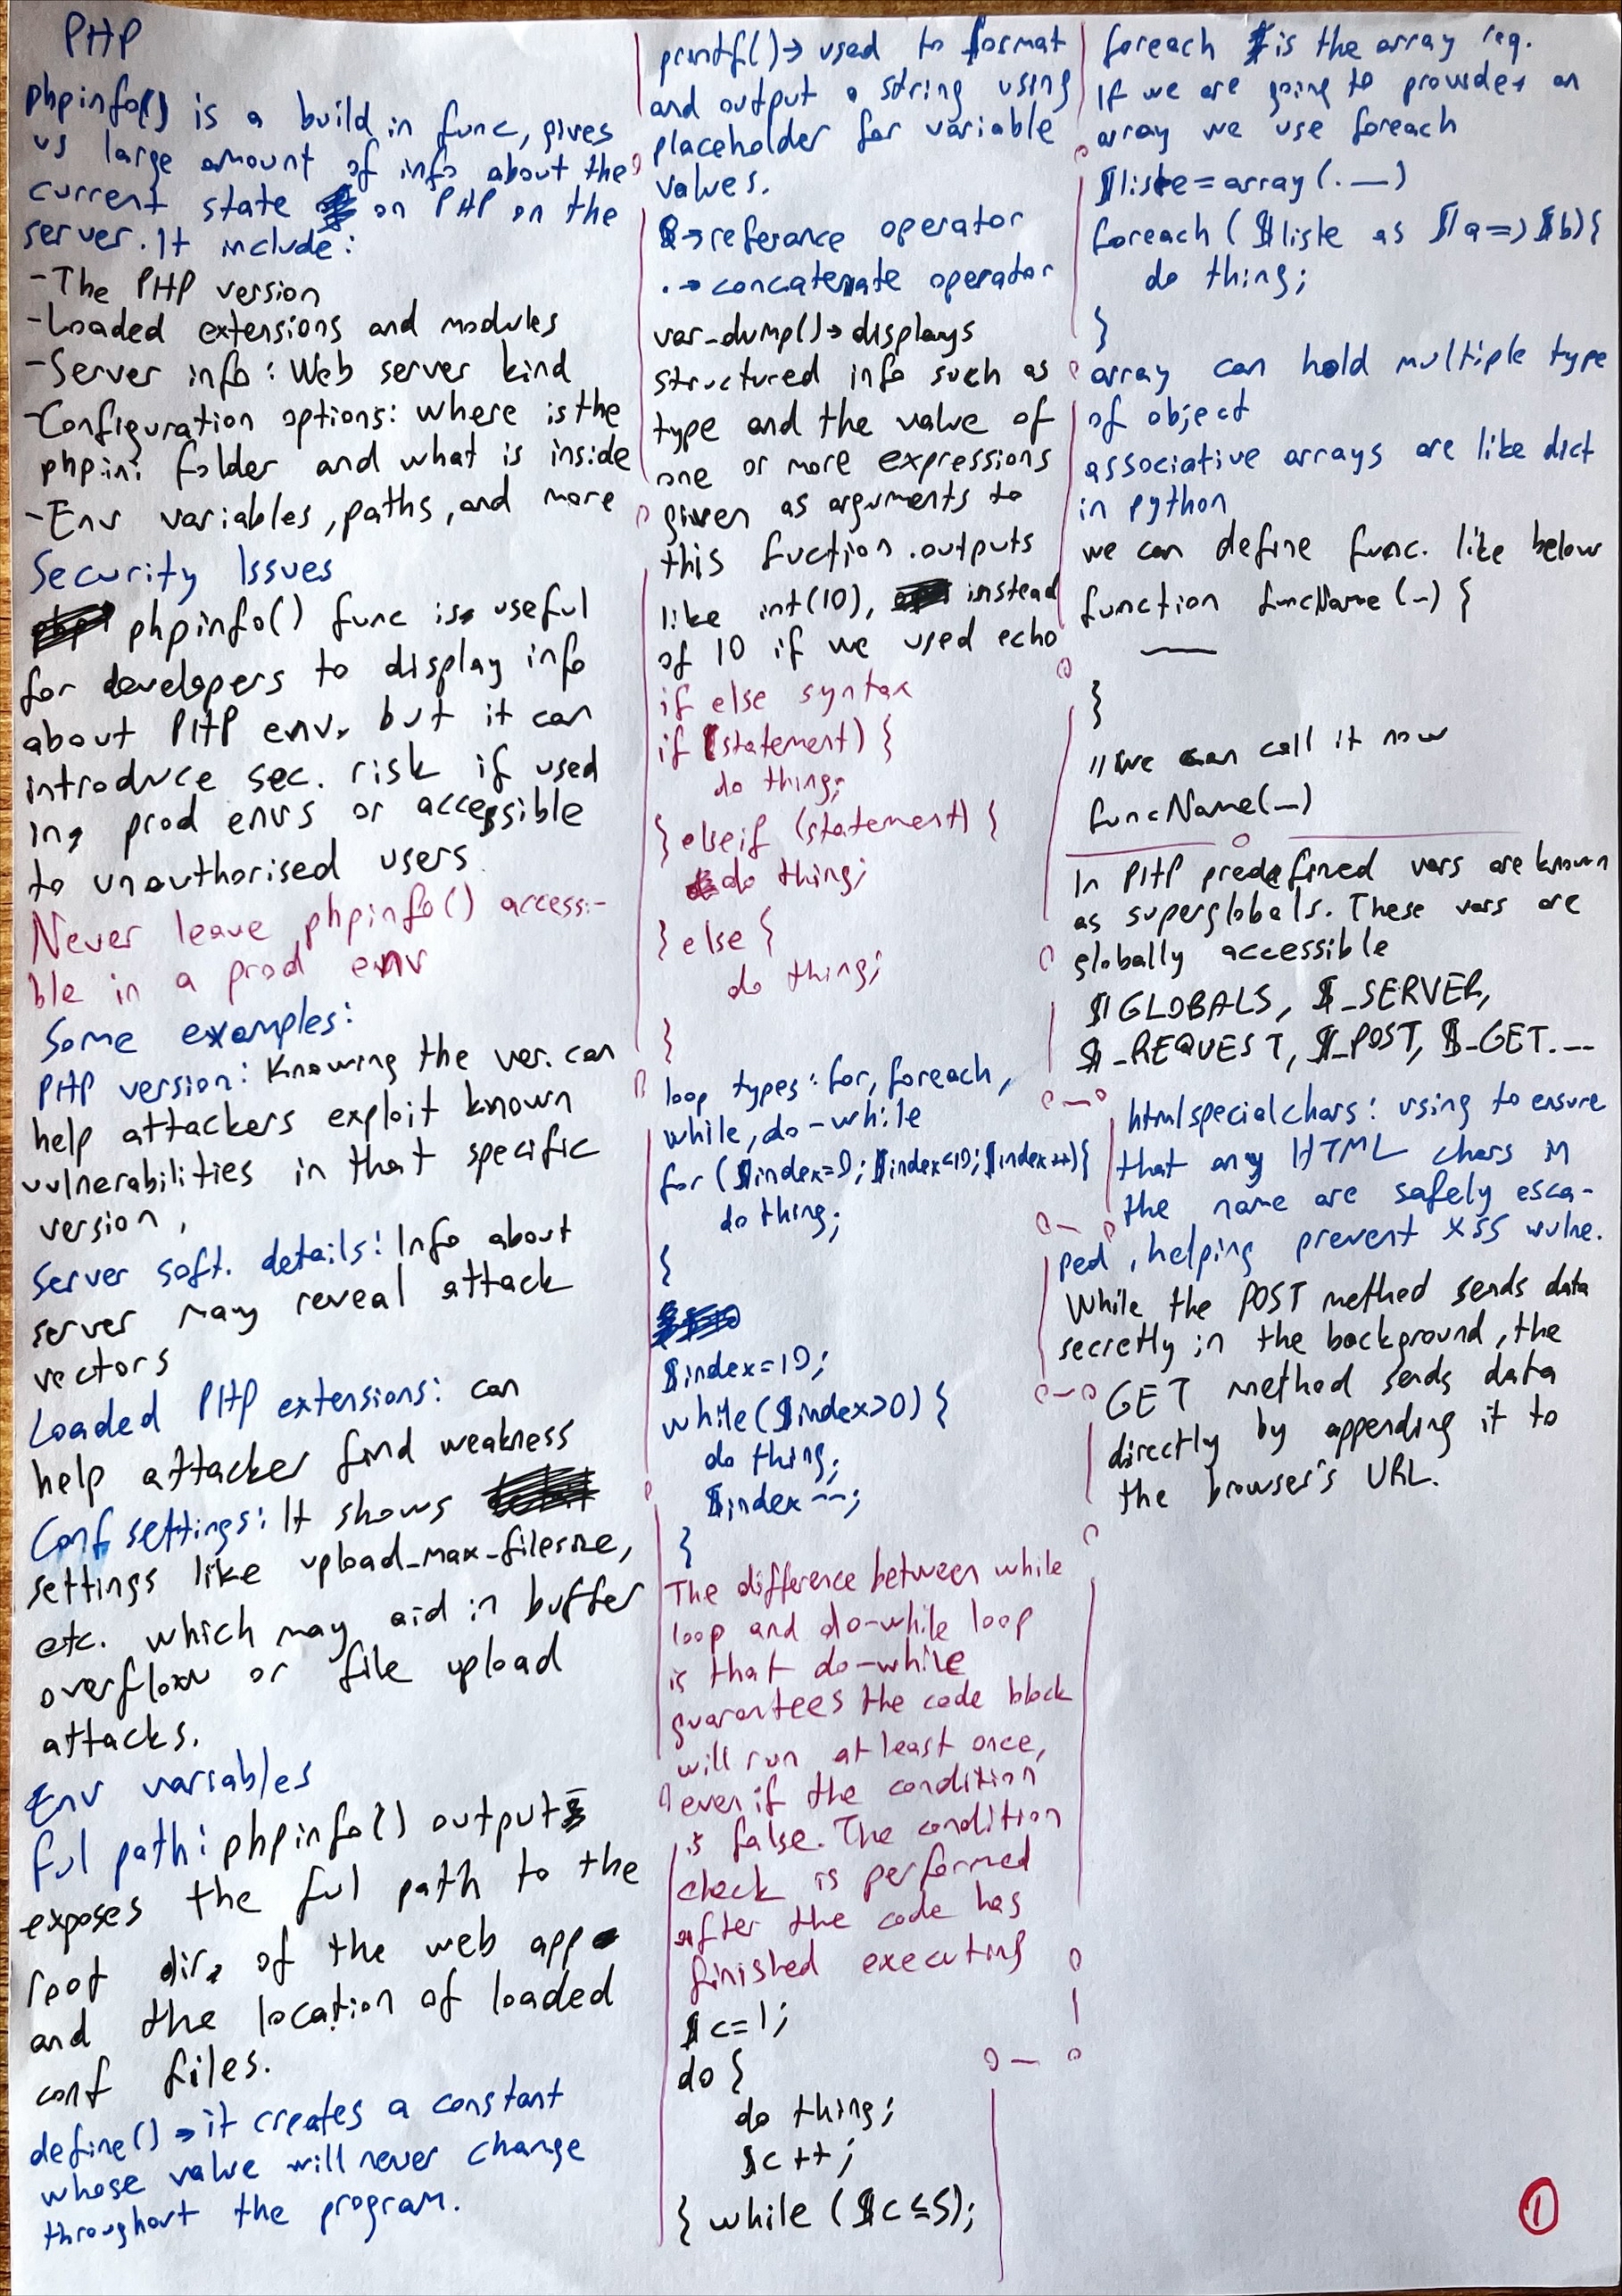 PHP
phpinfo() is a build in func, gives
us large amount of info about the
current state on PHP on the
server. It include:
-The PHP version
-Loaded extensions and modules
-Server info: Web server kind
-Configuration options: where is the
php.ini folder and what is inside
-Env variables, paths, and more
Security Issues
phpinfo() func is useful
for developers to display info
about PHP env. but it can
introduce sec. risk if used
in, prod envs or accessible
to unauthorised users
Never leave phpinfo() accessi-
ble in a prod env
Some examples:
PHP version: Knowing the ver. can
help attackers exploit known
vulnerabilities in that specific
version,
Server soft. details: Info about
server may reveal attack
vectors
Loaded PHP extensions: can
help attacker find weakness
Conf settings: It shows
settings like upload_max_filesize,
etc. which may aid in buffer
overflow or file upload
attacks.
Env variables
ful path: phpinfo() output
exposes the ful path to the
root dir. of the web app
and the location of loaded
conf files.
define() → it creates a constant
whose value will never change
throughout the program.
printf() → used to format
and output a string using
placeholder for variable
values.
& → referance operator
. → concatenate operator
var_dump() → displays
structured info such as
type and the value of
one or more expressions
given as arguments to
this fuction. outputs
like int(10), instead
of 10 if we used echo
if else syntax
if (statement) {
do thing;
} elseif (statement) {
do thing;
} else {
do thing;
}
loop types: for, foreach,
while, do-while
for ($index=0; $index<10; $index++){
do thing;
{
$index=10;
while($index>0) {
do thing;
$index--;
}
The difference between while
loop and do-while loop
is that do-while
guarantees the code block
will run at least once,
even if the condition
is false. The condition
check is performed
after the code has
finished executing
$c=1;
do {
do thing;
$c++;
} while ($c≤5);
foreach is the array req.
If we are going to provide an
array we use foreach
$liste=array(.—)
foreach ($liste as $a=>$b){
do thing;
}
array can hold multiple type
of object
associative arrays are like dict
in python
we can define func. like below
function funcName(—) {
—
}
//we can call it now
funcName(—)
In PHP predefined vars are known
as superglobals. These vars are
globally accessible
$GLOBALS, $_SERVER,
$_REQUEST, $_POST, $_GET.—
htmlspecialchars: using to ensure
that any HTML chars in
the name are safely esca-
ped, helping prevent XSS vulne.
While the POST method sends data
secretly in the background, the
GET method sends data
directly by appending it to
the browser's URL.
1